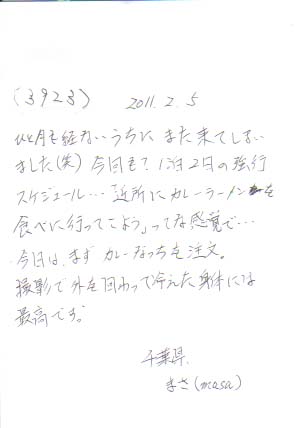 (3923) 2011. 2. 5
ひと月も経たないうちに また来てしまい
ました(笑) 今回も? 1泊2日の強行
スケジュール… 近所にカレーラーメンを
食べに行ってこよう」ってな感覚で…
今日は、まず カレーなっちを注文。
撮影で外を回わって冷えた身体には
最高です。
千葉県
まさ(masa)